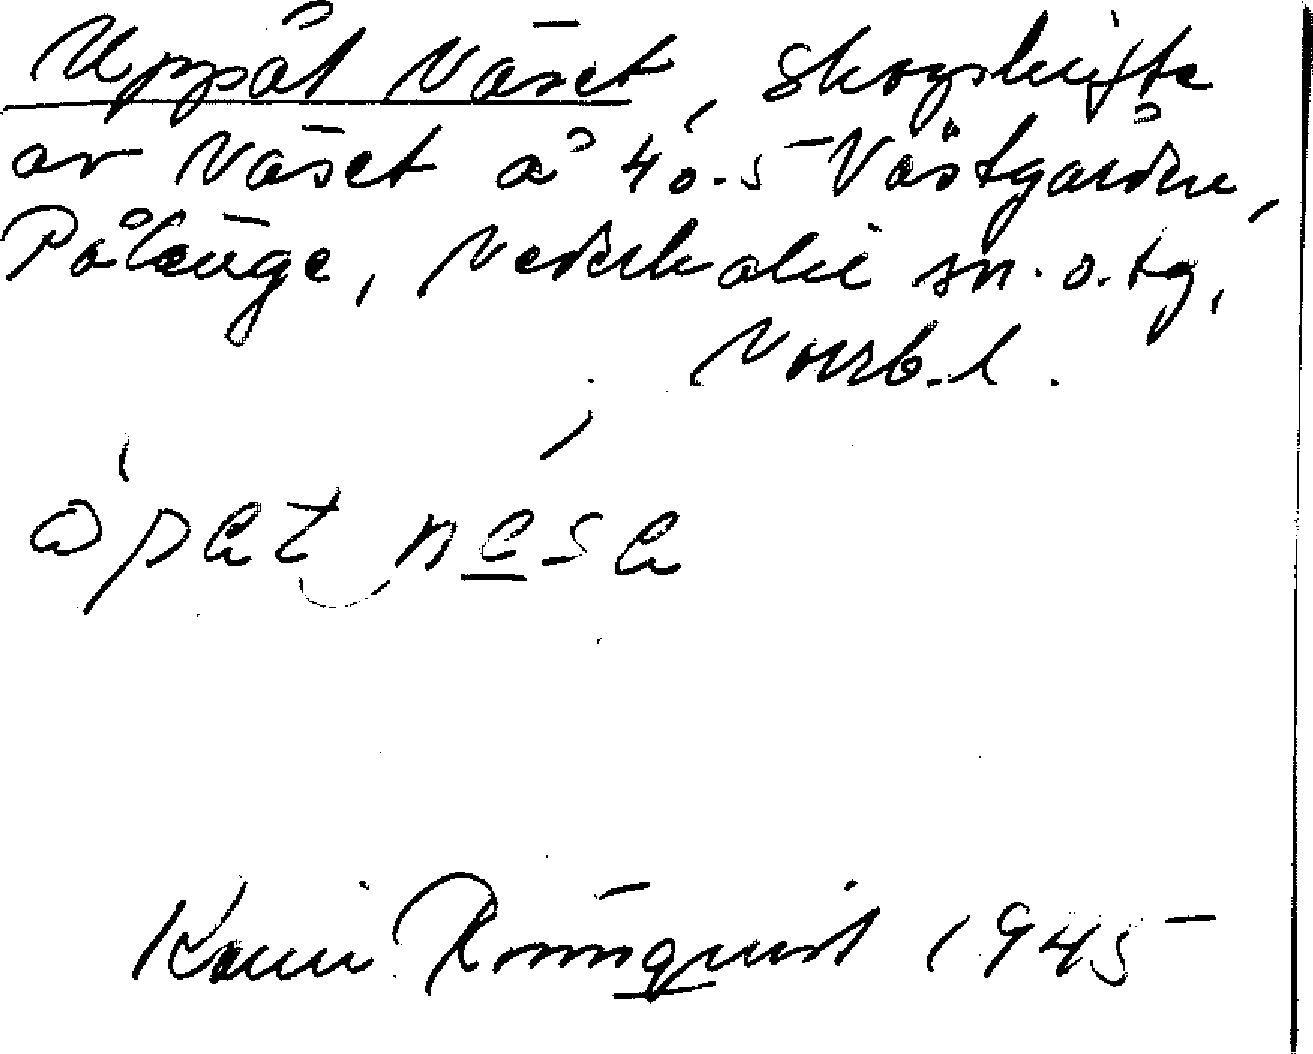 Uppåt Näset, skogskifte
av Näset å 40.5 Västgården,
Pålänge, Nederkalix sn. o. tg,
Norrb. l.
åpat nese
Rönnqvist 1945